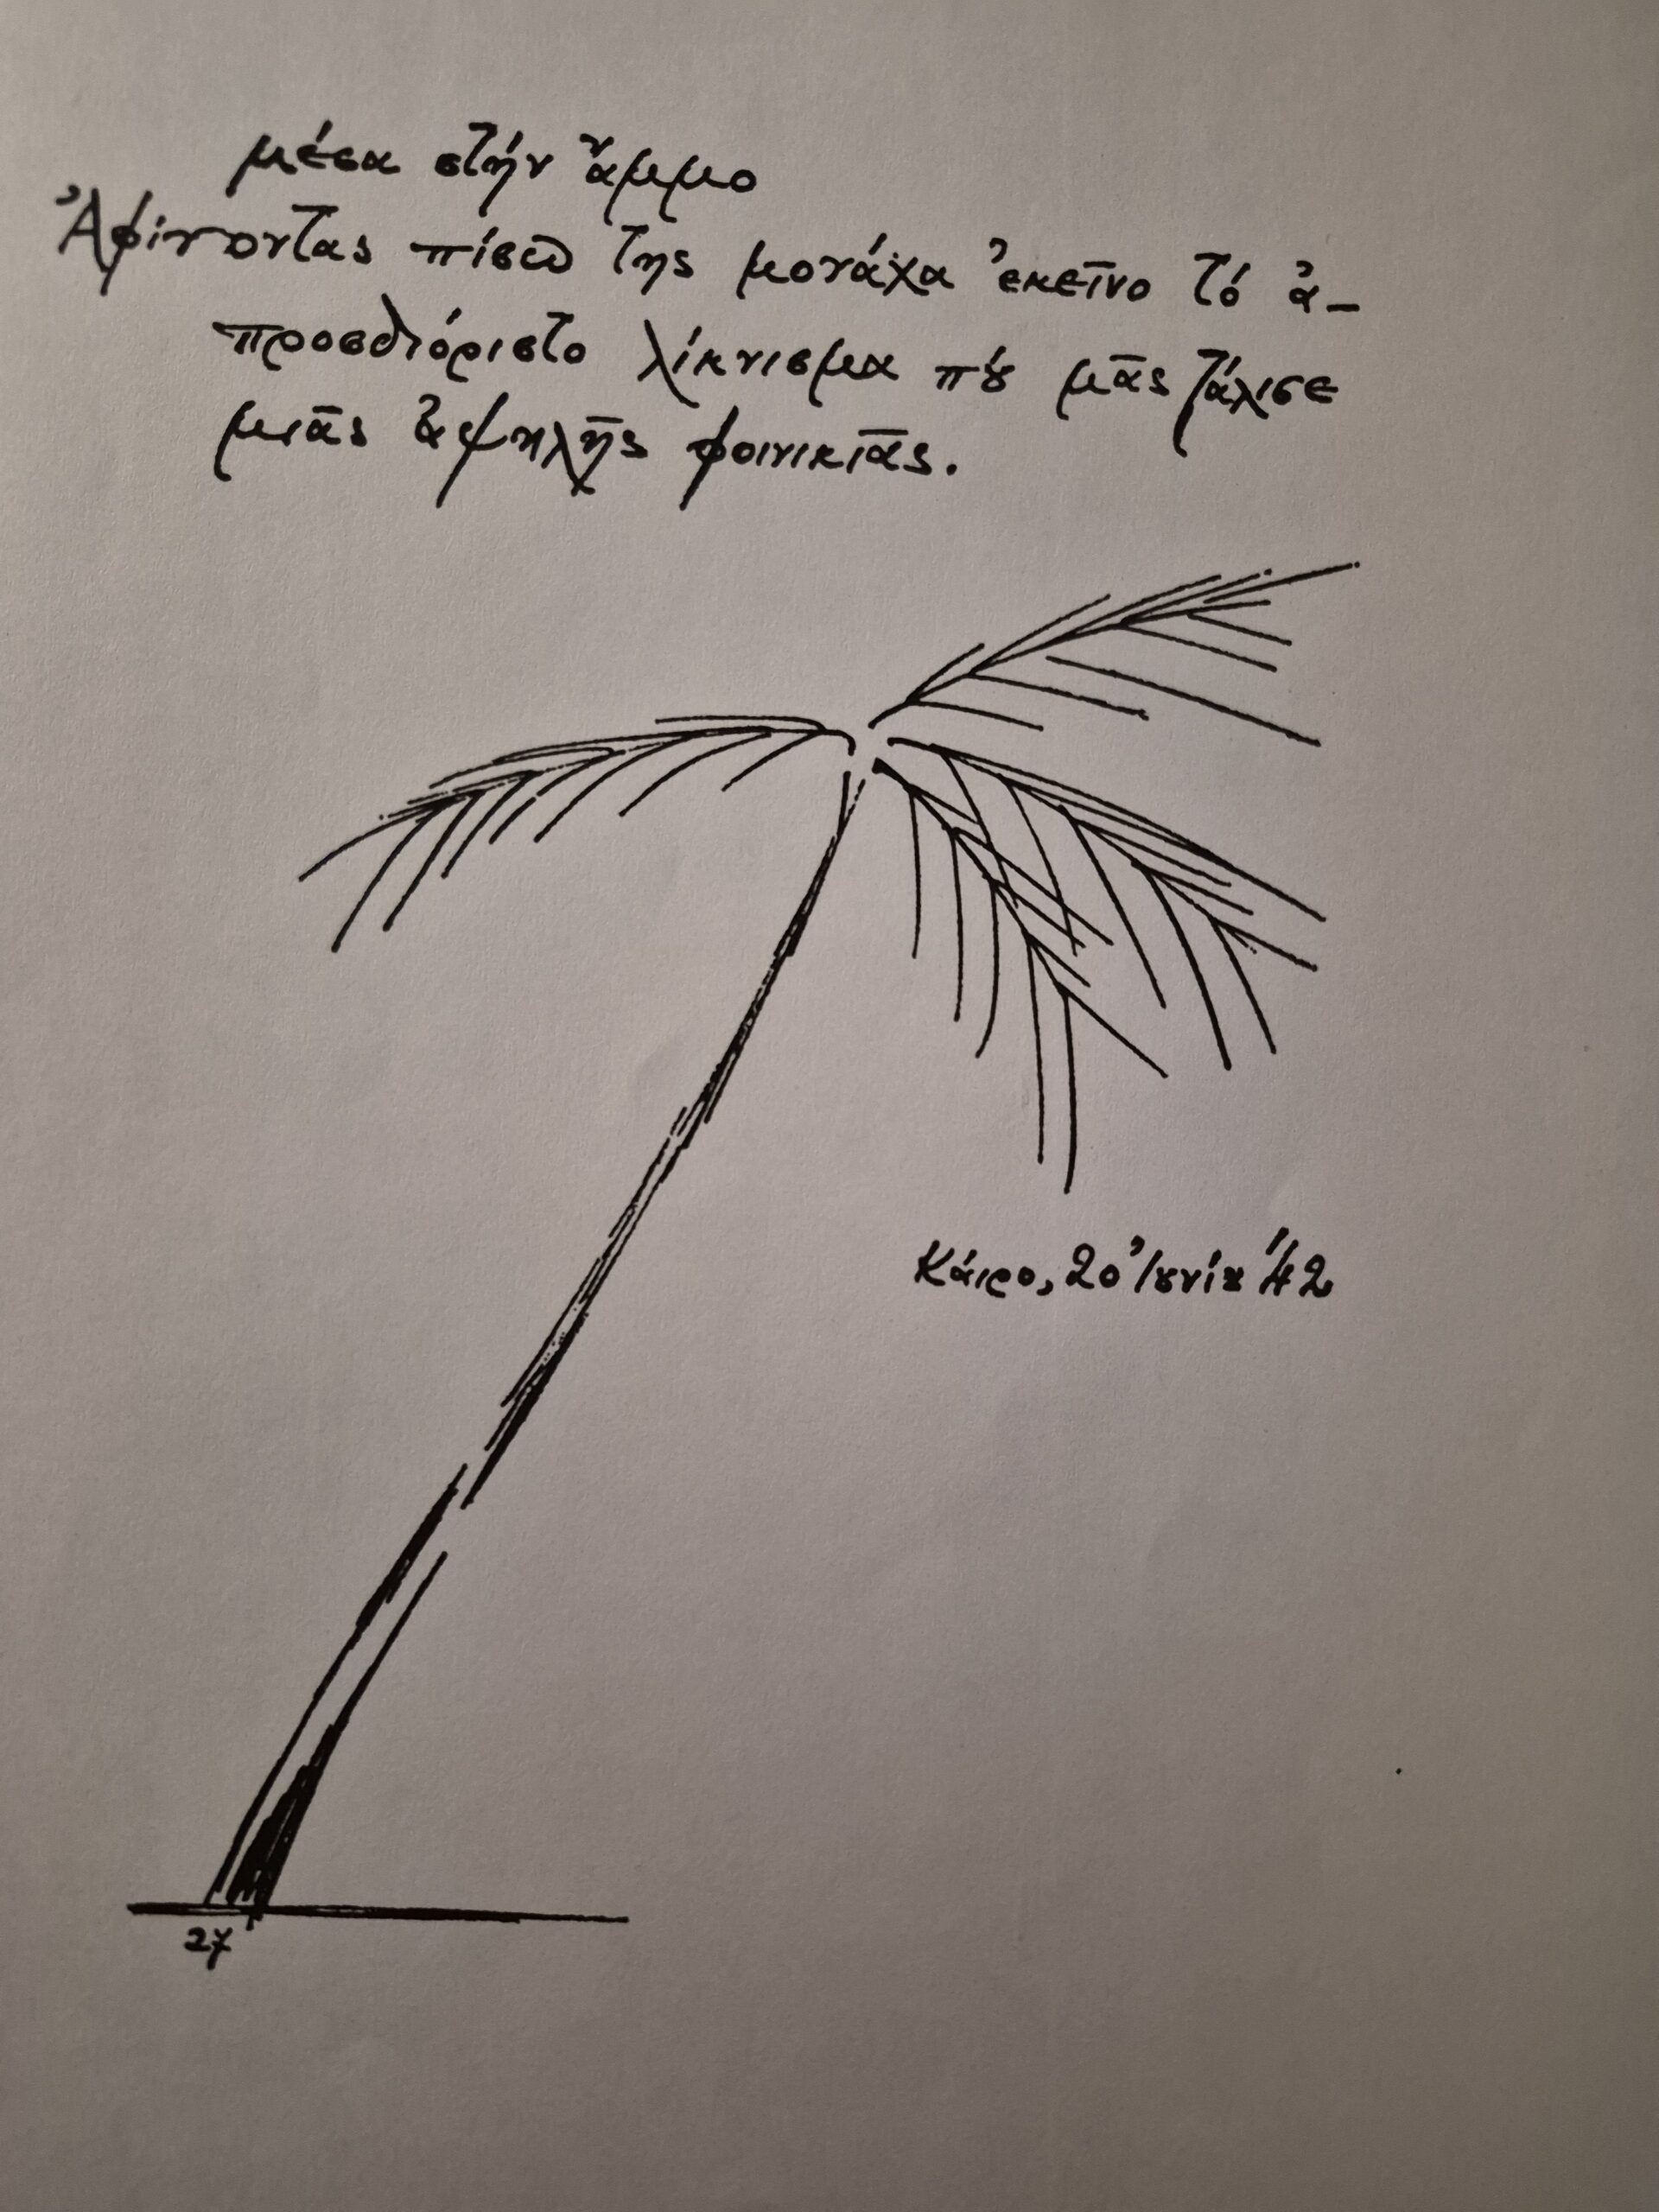 μέσα στήν ἄμμο
Ἀφίνοντας πίσω της μονάχα ἐκεῖνο τό ἀ-
προσδιόριστο λίκνισμα πȣ́ μᾶς ζάλισε
μιᾶς ὑψηλῆς φοινικιᾶς.
Κάιρο, 20 Ἰȣνίȣ '42
27